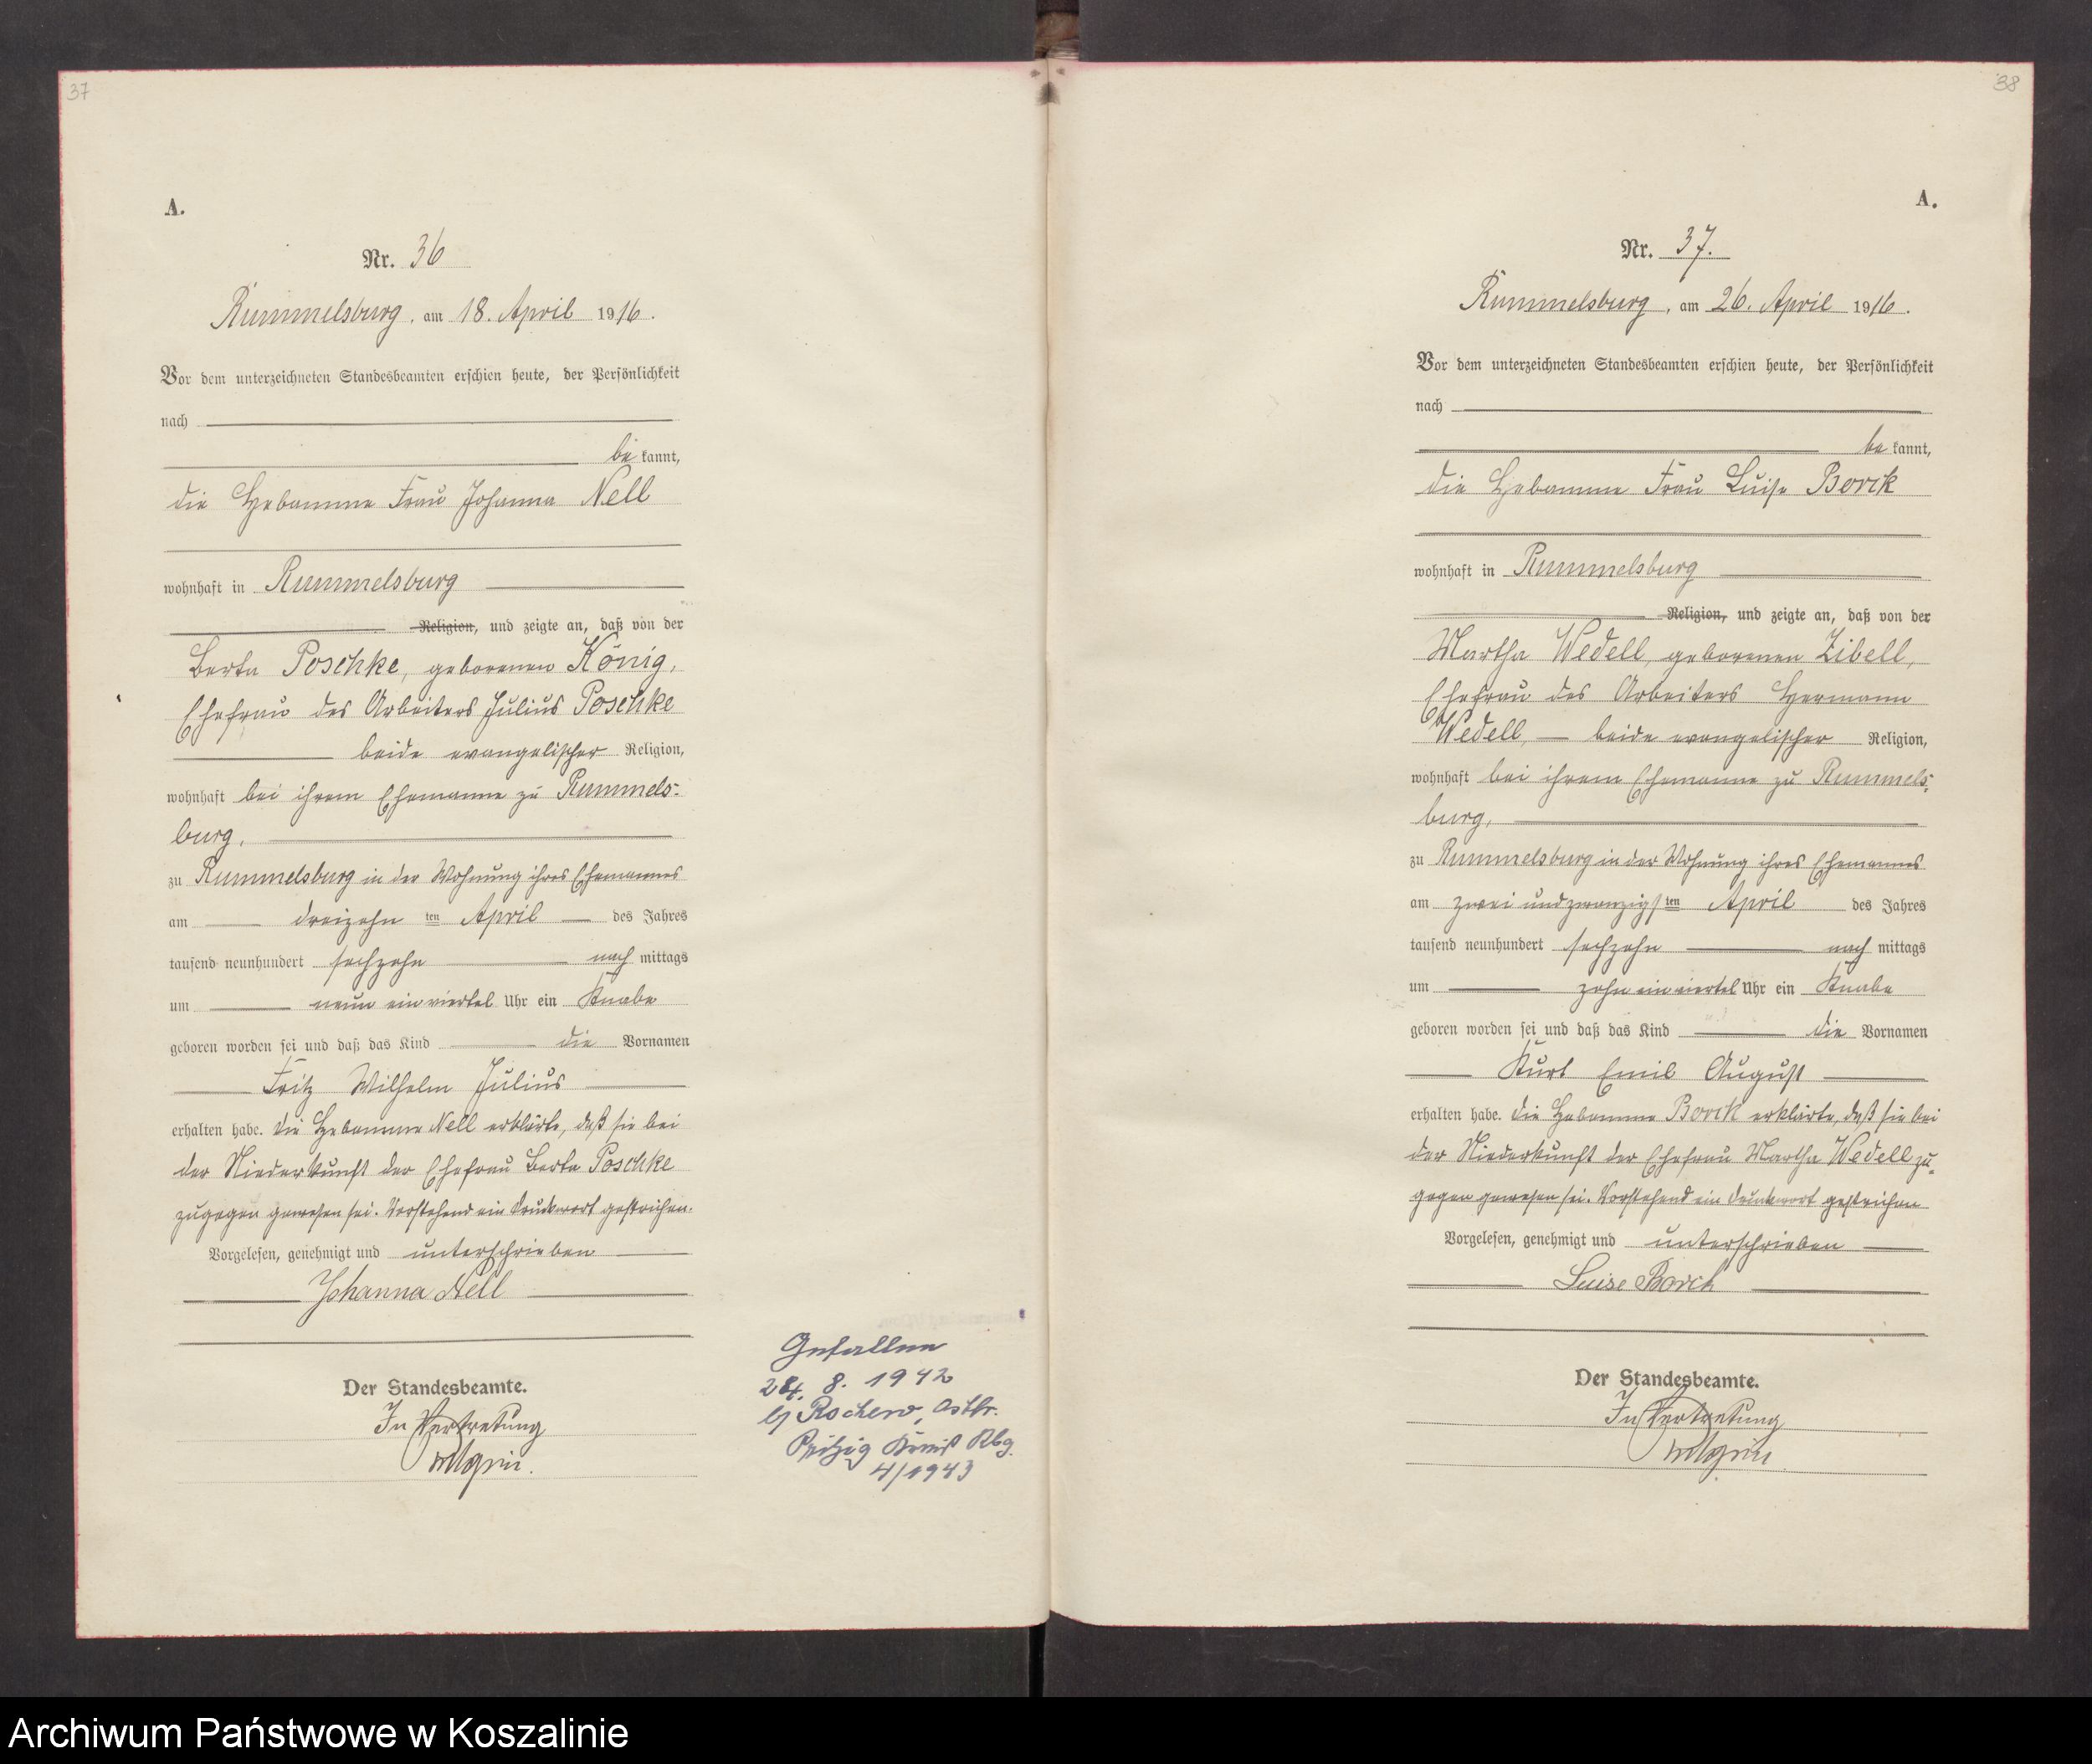 37
A.
Nr. 36
Rummelsburg, am 18. April 1916.
Vor dem unterzeichneten Standesbeamten erschien heute, der Persönlichkeit
nach
be kannt,
die Hebamme Frau Johanna Nell
wohnhaft in Rummelsburg
Religion, und zeigte an, daß von der
Berta Poschke, geborenen König,
Ehefrau des Arbeiters Julius Poschke
beide evangelischer Religion,
wohnhaft bei ihrem Ehemanne zu Rummels-
burg,
zu Rummelsburg in der Wohnung ihres Ehemannes
am dreizehn ten April des Jahres
tausend neunhundert sechzehn nach mittags
um neun ein viertel Uhr ein Knabe
geboren worden sei und daß das Kind die Vornamen
Fritz Wilhelm Julius
erhalten habe. Die Hebamme Nell erklärte, daß sie bei
der Niederkunft der Ehefrau Berta Poschke
zugegen gewesen sei. Vorstehend ein Druckwort gestrichen.
Vorgelesen, genehmigt und unterschrieben
Johanna Nell
Der Standesbeamte.
In Vertretung
Gefallen
24. 8. 1942
Rochewo, Ostfr.
Pritzig Kreis Rbg.
4/1943
38
A.
Nr. 37.
Rummelsburg, am 26. April 1916.
Vor dem unterzeichneten Standesbeamten erschien heute, der Persönlichkeit
nach
be kannt,
die Hebamme Frau Luise Borck
wohnhaft in Rummelsburg
Religion, und zeigte an, daß von der
Martha Wedell, geborenen Zibell,
Ehefrau des Arbeiters Hermann
Wedell, beide evangelischer Religion,
wohnhaft bei ihrem Ehemanne zu Rummels-
burg,
zu Rummelsburg in der Wohnung ihres Ehemannes
am zwei und zwanzigs ten April des Jahres
tausend neunhundert sechzehn nach mittags
um zehn ein viertel Uhr ein Knabe
geboren worden sei und daß das Kind die Vornamen
Kurt Emil August
erhalten habe. Die Hebamme Borck erklärte, daß sie bei
der Niederkunft der Ehefrau Martha Wedell zu-
gegen gewesen sei. Vorstehend ein Druckwort gestrichen
Vorgelesen, genehmigt und unterschrieben
Luise Borck
Der Standesbeamte.
In Vertretung
Archiwum Państwowe w Koszalinie